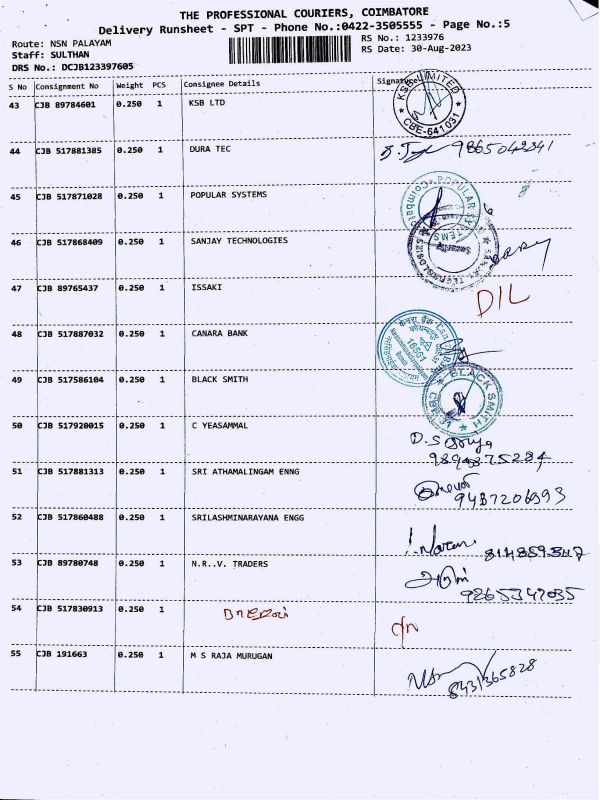 THE PROFESSIONAL COURIERS, COIMBATORE
Delivery Runsheet - SPT - Phone No.:0422-3505555 - Page No.:5
Route: NSN PALAYAM
RS No.: 1233976
Staff: SULTHAN
RS Date: 30-Aug-2023
DRS No.: DCJB123397605
S No Consignment No Weight PCS Consignee Details Signature
43 CJB 89784601 0.250 1 KSB LTD
KSB LIMITED
CBE-641031
44 CJB 517881385 0.250 1 DURA TEC 9865042341
45 CJB 517871028 0.250 1 POPULAR SYSTEMS
POPULAR SYSTEMS
46 CJB 517868409 0.250 1 SANJAY TECHNOLOGIES
47 CJB 89765437 0.250 1 ISSAKI D/L
48 CJB 517887032 0.250 1 CANARA BANK
16561
49 CJB 517586104 0.250 1 BLACK SMITH
BLACK SMITH
50 CJB 517920015 0.250 1 C YEASAMMAL
51 CJB 517881313 0.250 1 SRI ATHAMALINGAM ENNG
9487206993
52 CJB 517860488 0.250 1 SRILASHMINARAYANA ENGG
53 CJB 89780748 0.250 1 N.R..V. TRADERS
9865347035
54 CJB 517830913 0.250 1
55 CJB 191663 0.250 1 M S RAJA MURUGAN
8431365828